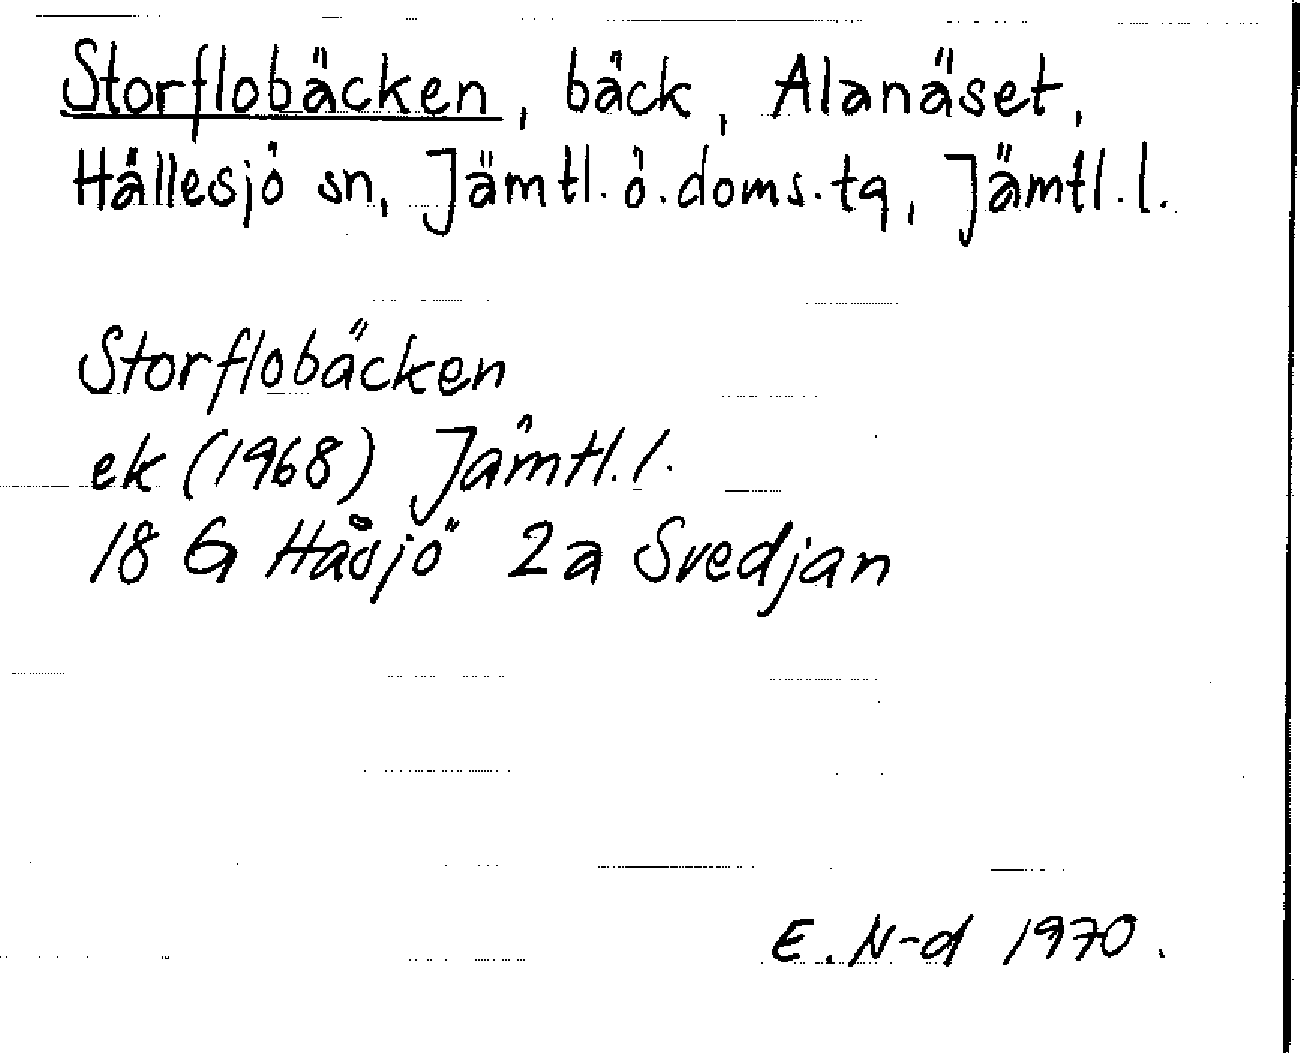 Storflobäcken, bäck, Alanäset,
Hällesjö sn, Jämtl. ö. doms. tg, Jämtl. l.
Storflobäcken
ek (1968) Jämtl. l.
18 G Håsjö 2a Svedjan
E. N-d 1970.